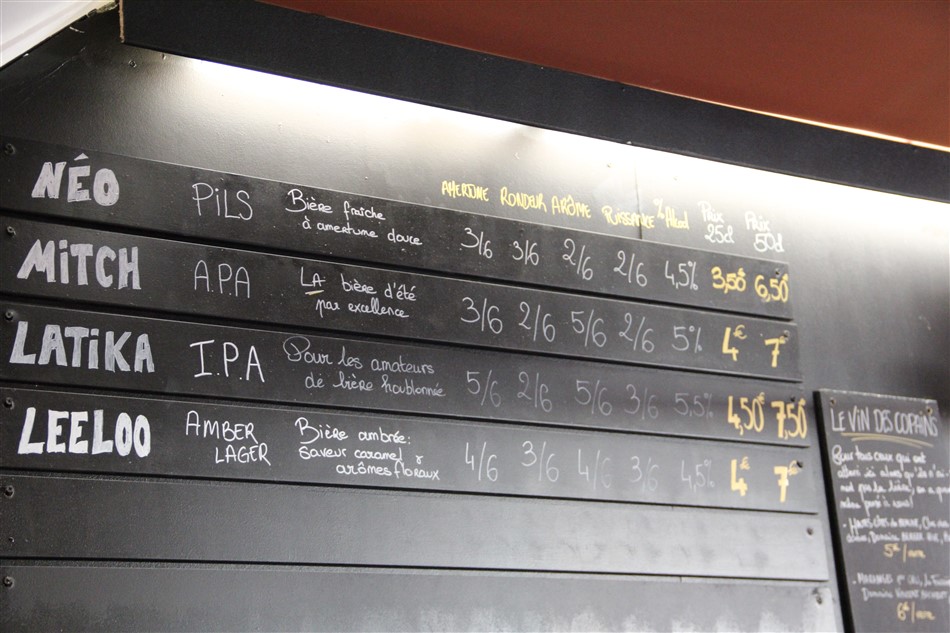 AMERTUME RONDEUR ARÔME PUISSANCE % Alcool Prix 25cl Prix 50cl
NÉO PILS Bière fraîche à amertume douce 3/6 3/6 2/6 2/6 4,5% 3,50€ 6,50€
MITCH A.P.A LA bière d'été par excellence 3/6 2/6 5/6 2/6 5% 4€ 7€
LATIKA I.P.A Pour les amateurs de bière houblonnée 5/6 2/6 5/6 3/6 5,5% 4,50€ 7,50€
LEELOO AMBER LAGER Bière ambrée: saveur caramel & arômes floraux 4/6 3/6 4/6 3/6 4,5% 4€ 7€
LE VIN DES COPAINS
Pour tous ceux qui ont
5€/verre
6€/verre